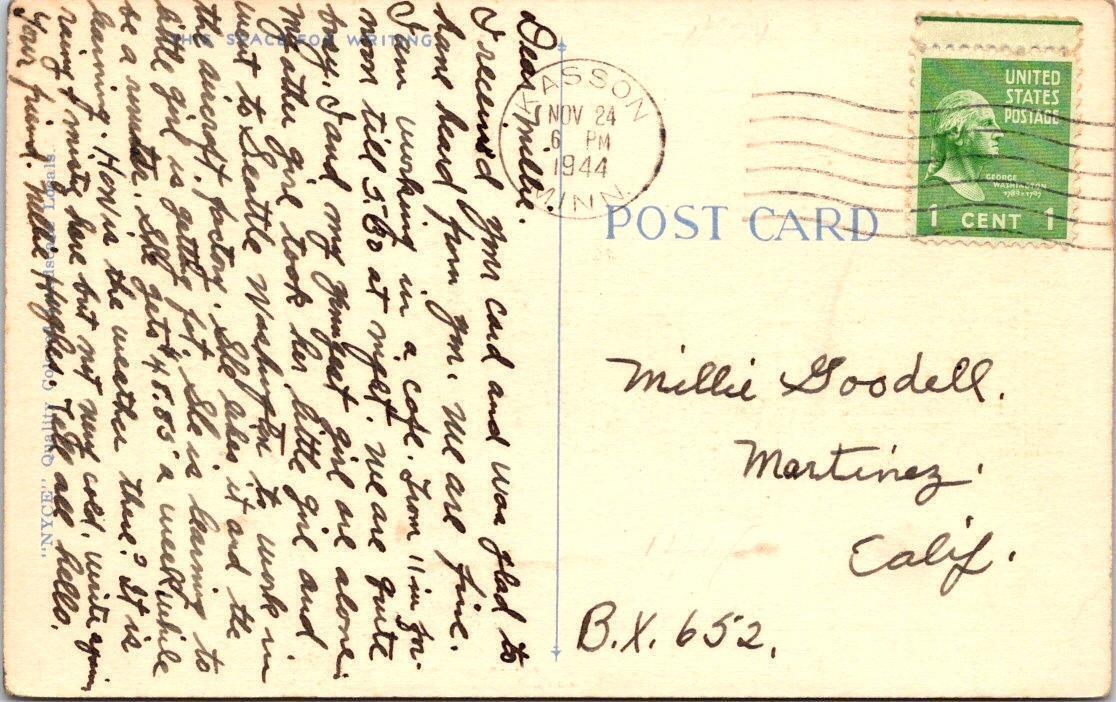 THIS SPACE FOR WRITING
Dear Millie.
I received your card and was glad to
have heard from you. We are fine.
I am working in a cafe. From 11 in for-
noon till 5:60 at night. We are quite
busy. I and my youngest girl are alone.
My other girl took her little girl and
went to Seattle Washington to work in
the aircraft factory. She likes it and the
little girl is getting fat. She is learning to
be a She gets $45.85 a week while
learning. How is the weather there? It is
rainy & misty here but not very cold. Write again
Your friend. Nellie Hughes. Tell all hello.
"NYCE" Quality Locals.
KASSON
NOV 24
6 PM
1944
MINN.
UNITED
STATES
POSTAGE
GEORGE
WASHINGTON
1789-1797
1 CENT 1
POST CARD
Millie Goodell.
Martinez.
Calif.
B.X. 652.